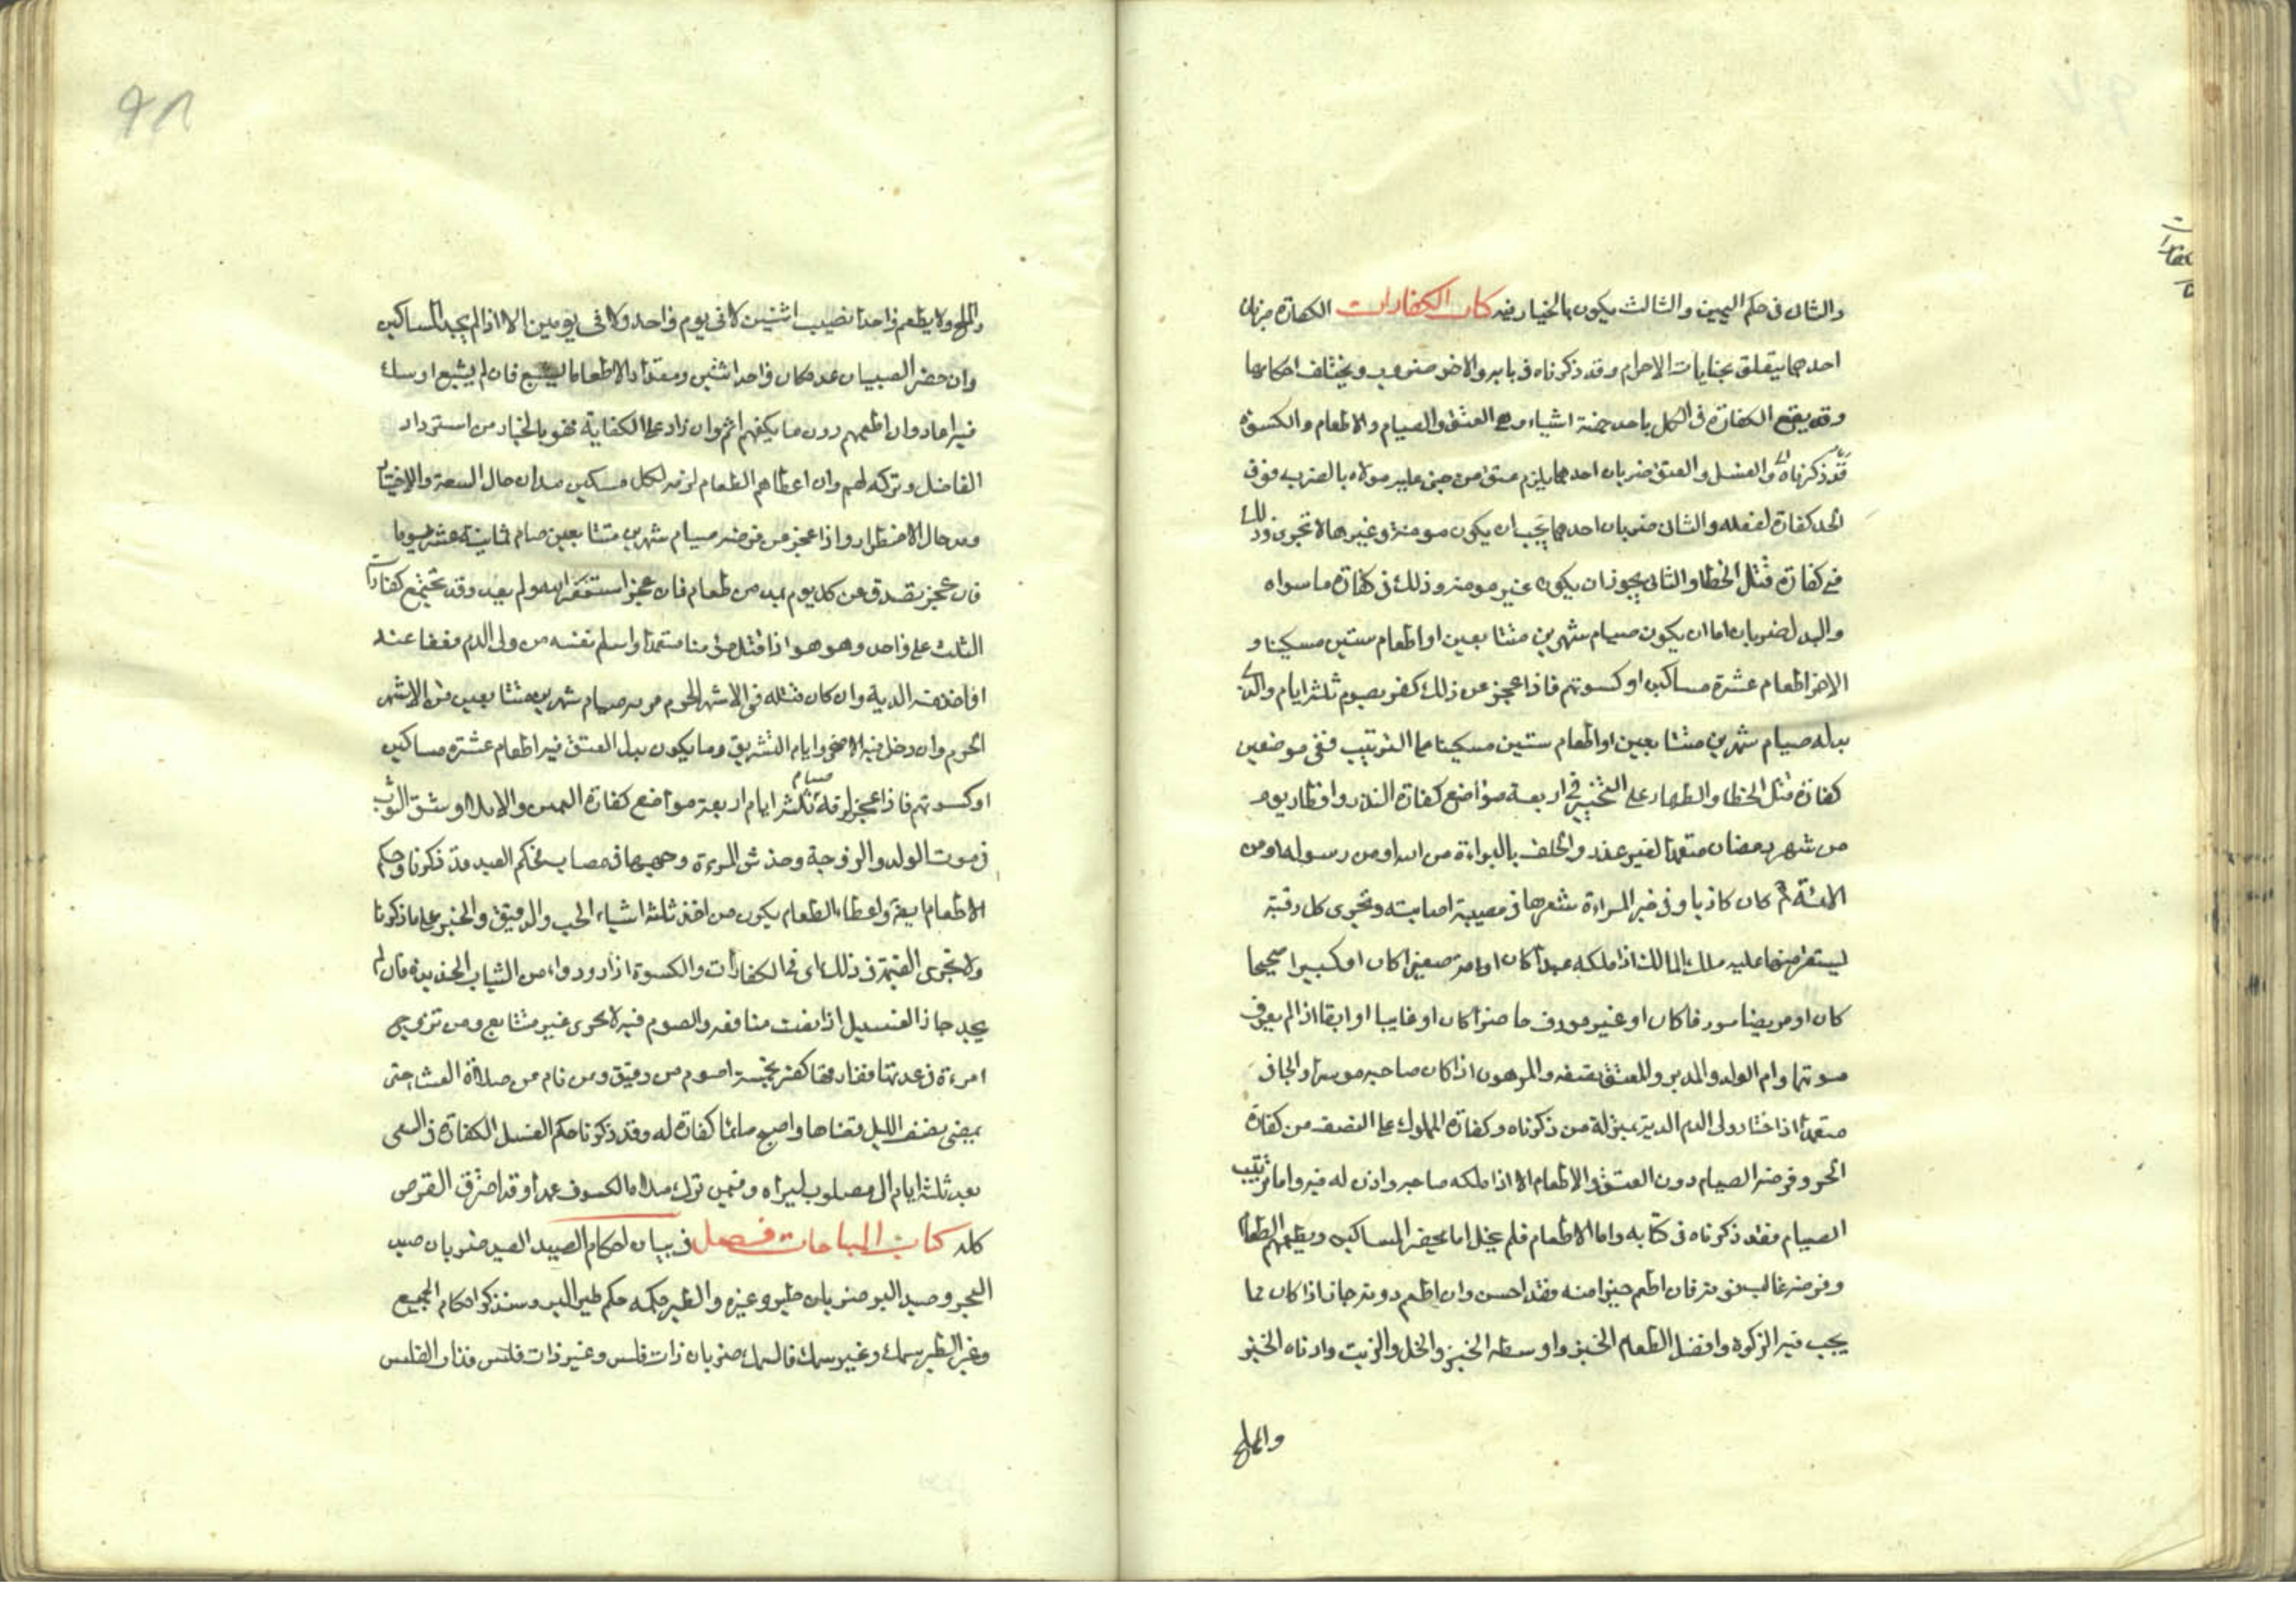 والثانى فى حكم اليمين والثالث يكون بالخيار فيه كتاب الكفارات الكفارة ضربان
احدهما يتعلق بجنايات الاحرام وقد ذكرناه فى بابه والاخر ضروب ويختلف احكامها
وقد يقع الكفارة فى الكل باحد خمسة اشياء وهى العتق والصيام والاطعام والكسوة
وقد ذكرناه والغسل والعتق ضربان احدهما يلزم عتق من جنى عليه مولاه بالضرب فوق
الحد كفارة لفعله والثانى ضربان احدهما يجب ان يكون مومنة وغيرها لا تجزى وذلك
فى كفارة قتل الخطا والثانى يجوز ان يكون غير مومنة وذلك فى كفارة ما سواه
والبدل ضربان اما ان يكون صيام شهرين متتابعين او اطعام ستين مسكينا و
الاخر اطعام عشرة مساكين او كسوتهم فاذا عجز عن ذلك كفر بصوم ثلثة ايام والذى
بدله صيام شهرين متتابعين او اطعام ستين مسكينا مما الترتيب ففى موضعين
كفارة قتل الخطا والظهار على التخيير فى اربعة مواضع كفارة النذر وافطار يوم
من شهر رمضان متعمدا لغير عذر والحلف بالبراءة من الله او من رسوله او من
الائمة كان كاذبا وفى خبر المراءة شعرها فى مصيبة اصابته وتجزى كل رقبة
ليستقر عليه ملك المالك اذا ملكه عبدا كان او امة صغيرا كان او كبيرا صحيحا
كان او مريضا معروفا كان او غير معروف حاضرا كان او غايبا او ابقا اذا لم يعرف
موتها وام الولد والمدبر والمعتق نصفه والمرهون اذا كان صاحبه موسرا والجانى
متعمدا اذا اختار ولى الدم الدية بمنزلة من ذكرناه وكفارة المملوك على النصف من كفارة
الحر وفرضه الصيام دون العتق والاطعام الا اذا ملكه صاحبه واذن له فيه واما ترتيب
الصيام فقد ذكرناه فى كتابه واما الاطعام فلم يخل اما يحضر المساكين ويطعمهم الطعام
وفرضه غالب قوته فان اطعم خيرا منه فقد احسن وان اطعم دونه جاز اذا كان مما
يجب فيه الزكوة وافضل الطعام الخبز واوسطه الخبز والخل والزيت وادناه الخبز
والملح
والملح ولا يطعم واحدا نصيب اثنين لا فى يوم واحد ولا فى يومين الا اذا لم يجد المساكين
وان حضر الصبيان عد مكان واحد اثنين ومقدار الاطعام ما يشبع فان لم يشبع او سك
فيه اعاد وان اطعمهم دون ما يكفيهم اثم وان زاد على الكفاية فهو بالخيار من استرداد
الفاضل وتركه لهم وان اعطاهم الطعام لزمه لكل مسكين مدان حال السعة والاختيار
ومد حال الاضطرار واذا عجز من فرضه صيام شهرين متتابعين صام ثمانية عشر يوما
فان عجز تصدق عن كل يوم بمد من طعام فان عجز استغفر الله ولم يعد وقد تجتمع كفارات
الثلث على واحد وهو هو اذا قتل مؤمنا متعمدا واسلم نفسه من ولى الدم فعفا عنه
او اخذ منه الدية وان كان قتله فى الاشهر الحرم صيام شهرين متتابعين من الاشهر
الحرم وان دخل فيه الاضحى وايام التشريق وما يكون بدل العتق فيه اطعام عشرة مساكين
او كسوتهم فاذا عجز لزمه صيام ثلثة ايام اربعة مواضع كفارة اليمين والايلاء وشق الثوب
فى موت الولد والزوجة وخدش المرءة وجهها فى مصاب بحكم العبد قد ذكرنا وحكم
الاطعام ايضا واعطاء الطعام يكون من احد ثلثة اشياء الحب والدقيق والخبز على ما ذكرنا
ولا تجزى القيمة فى ذلك اى فى الكفارات والكسوة ازار ورداء من الثياب الجديدة فان لم
يجد جاز الغسيل اذا بقت منافعه والصوم فيه لا يجزى غير متتابع ومن تزوج
امرءة فى عدتها ففارقها كفر بخمسة اصوع من دقيق ومن نام من صلاة العشا حتى
يمضى نصف الليل قضاها واصبح صائما كفارة له وقد ذكرنا حكم الغسل الكفارة فى السعى
بعد ثلثة ايام الى مصلوب ليراه وفيمن ترك صلاة الكسوف عمدا وقد احترق القرص
كله كتاب المباحات فصل فى بيان احكام الصيد الصيد ضربان صيد
البحر وصيد البر ضربان طير وغيره والطير حكمه حكم طير البر وسنذكر احكام الجميع
وغير الطير سمك وغير سمك فالسمك ضربان ذات فلس وغير ذات فلس فذات الفلس